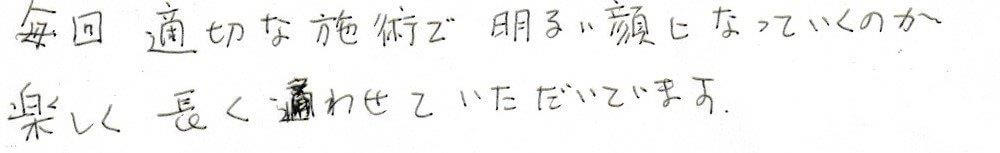 毎回 適切な施術で 明るい顔になっていくのが
楽しく 長く通わせていただいています.